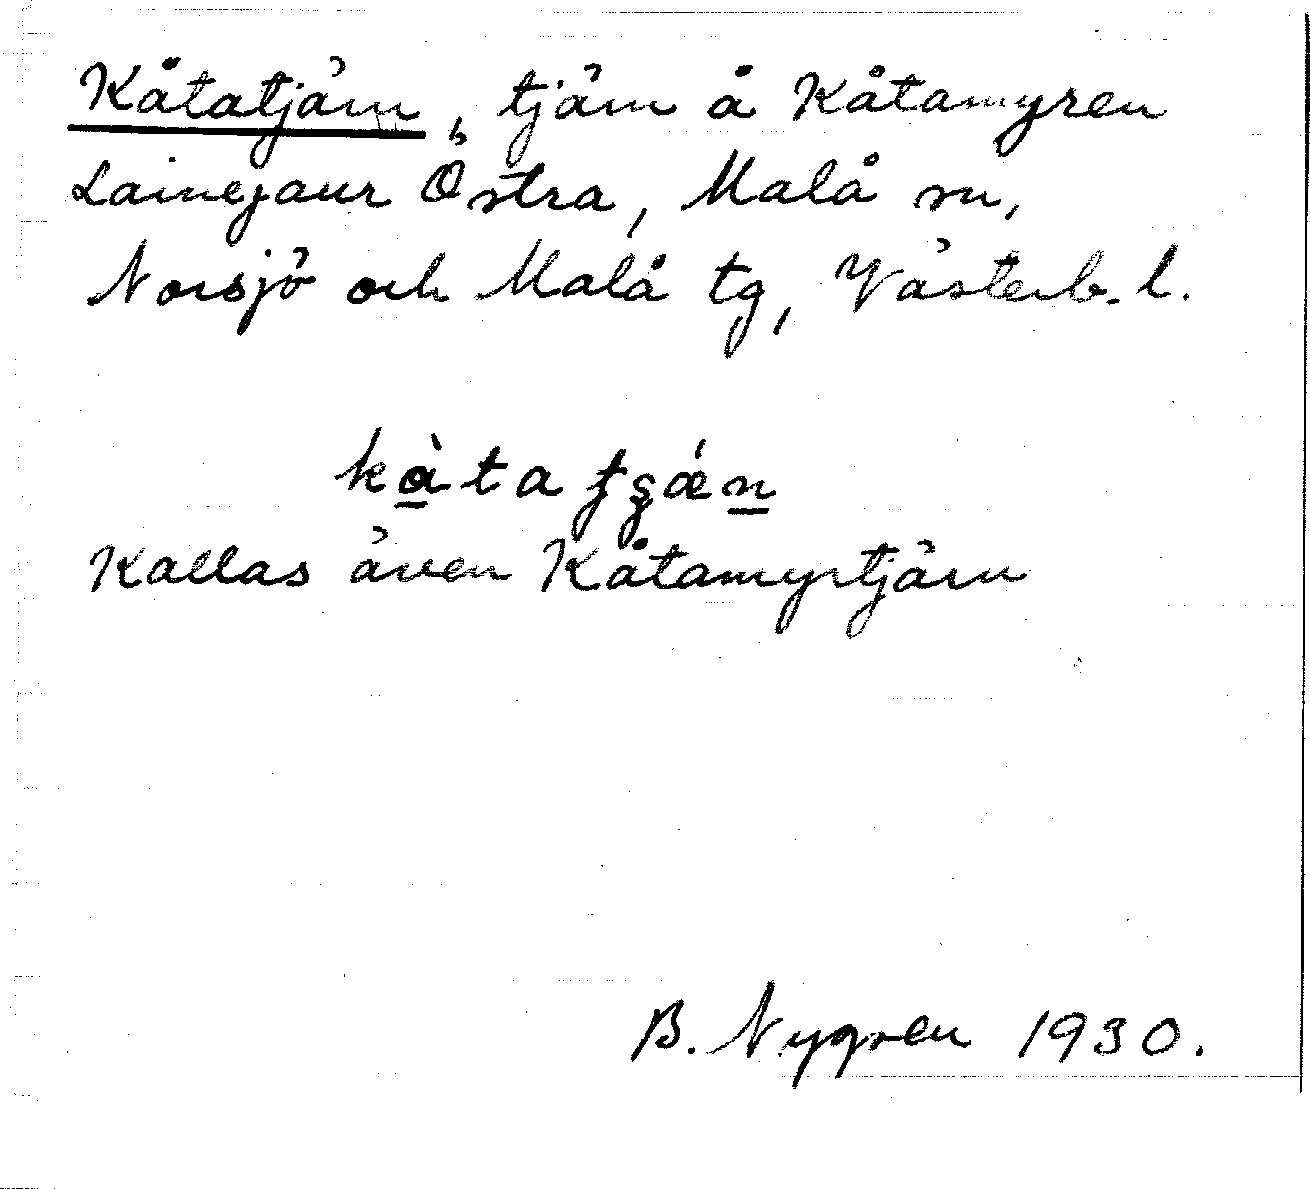 Kåtatjärn, tjärn å Kåtamyren
Lainejaur Östra, Malå sn,
Norsjö och Malå tg, Västerb. l.
kàtatʂǽn
Kallas även Kåtamyrtjärn
B. Nygren 1930.